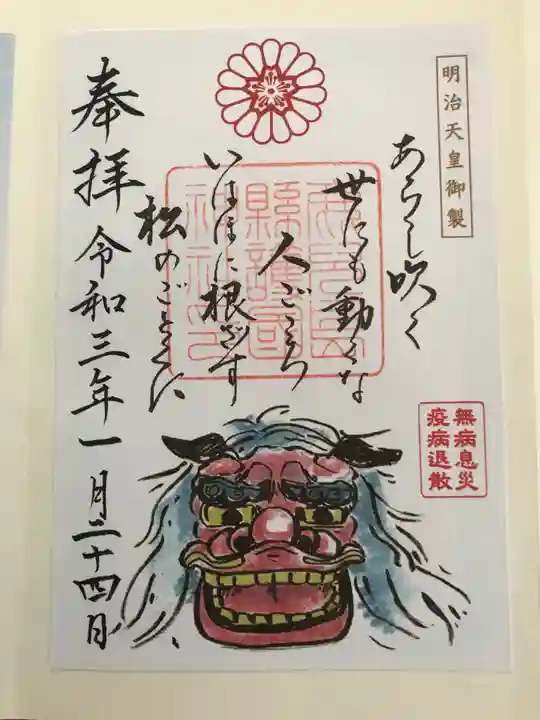 明治天皇御製
あらし吹く
世にも動くな
人ごころ
いはほに根ざす
松のごとくに
奉拝
令和三年一月二十四日
無病息災
疫病退散
縣護國